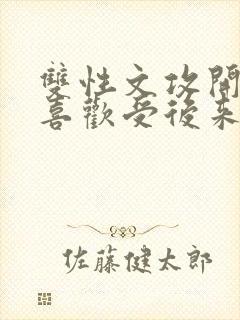 雙性文攻開
喜歡受後來
佐藤健太郎